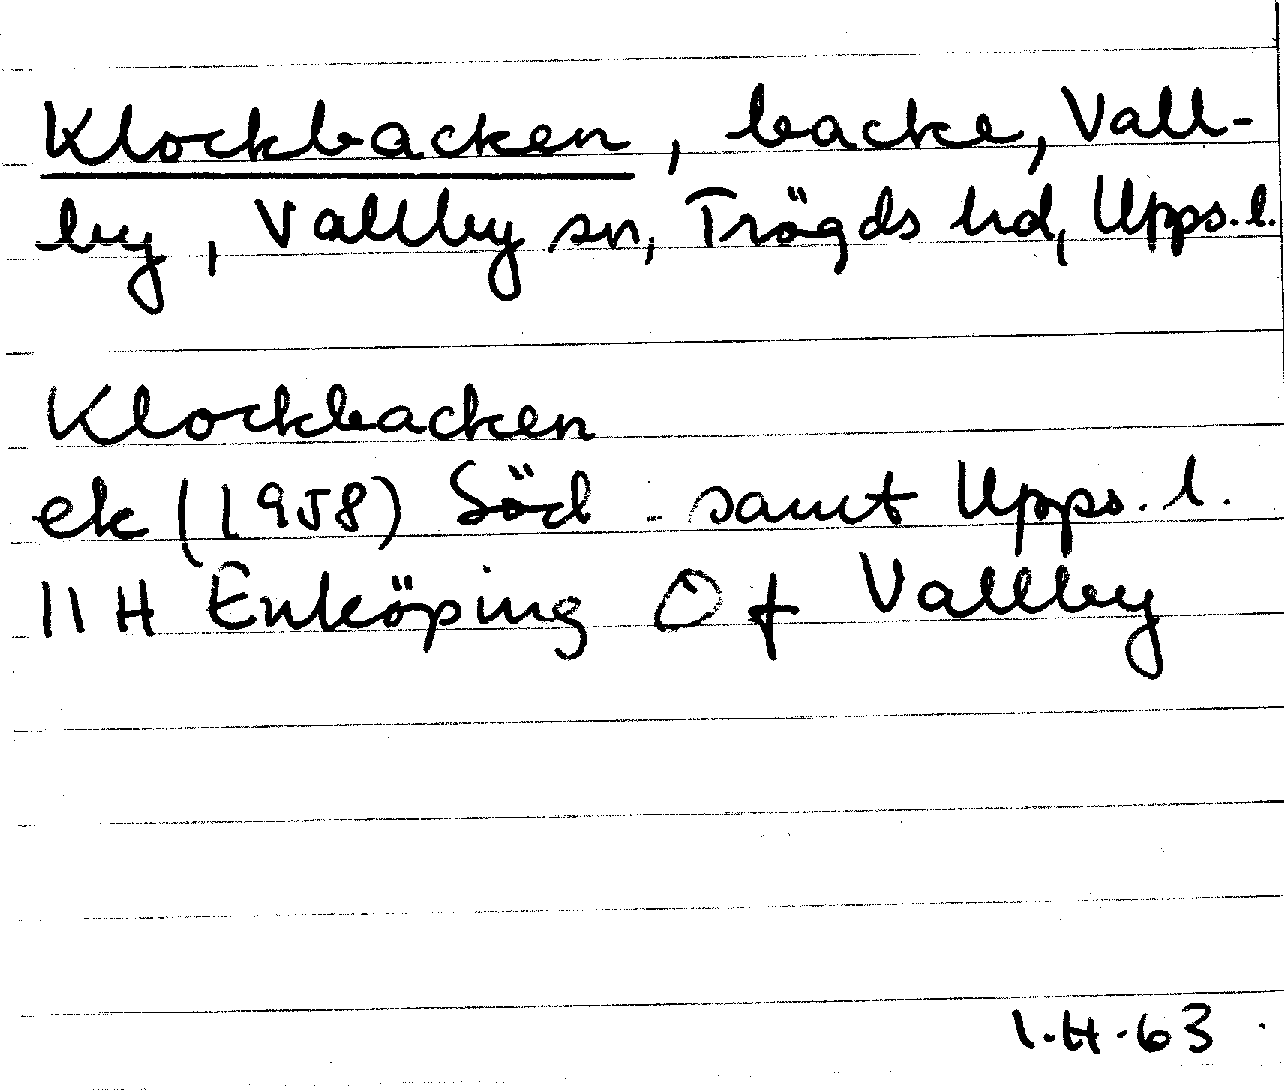 Klockbacken, backe, Vall-
by, Vallby sn, Trögds hd, Upps. l.
Klockbacken
ek (1958) Söd - samt Upps. l.
11 H Enköping Ö f Vallby
I.H.63